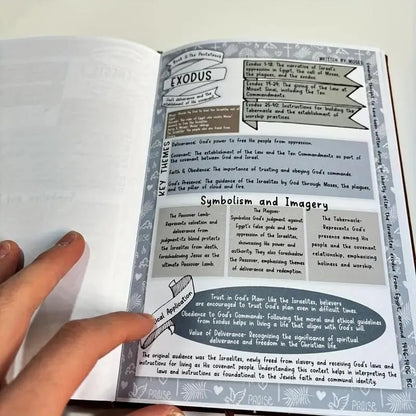 Book 2: The Pentateuch
WRITTEN BY: MOSES
EXODUS
God's deliverance and the
establishment of His covenant
Exodus 1-18: The narrative of Israel's
oppression in Egypt, the call of Moses,
the plagues, and the exodus
Exodus 19-24: The giving of the Law at
Mount Sinai, including the Ten
Commandments
Exodus 25-40: Instructions for building the
Tabernacle and the establishment of
worship practices
KEY THEMES
Deliverance: God's power to free His people from oppression.
Covenant: The establishment of the Law and the Ten Commandments as part of
the covenant between God and Israel.
Faith & Obedience: The importance of trusting and obeying God's commands.
God's Presence: The guidance of the Israelites by God through Moses, the plagues,
and the pillar of cloud and fire.
Symbolism and Imagery
The Passover Lamb:
Represents salvation and
deliverance from
judgment-its blood protects
the Israelites from death,
foreshadowing Jesus as the
ultimate Passover Lamb.
The Plagues:
Symbolize God's judgment against
Egypt's false gods and their
oppression of the Israelites,
showcasing His power and
authority. They also foreshadow
the Passover, emphasizing themes
of deliverance and redemption.
The Tabernacle:
Represents God's
presence among His
people and the covenant
relationship, emphasizing
holiness and worship.
Application
Trust in God's Plan: Like the Israelites, believers
are encouraged to trust God's plan even in difficult times.
Obedience to God's Commands: Following the moral and ethical guidelines
from Exodus helps in living a life that aligns with God's will.
Value of Deliverance: Recognizing the significance of spiritual
deliverance and freedom in the Christian life.
The original audience was the Israelites, newly freed from slavery and receiving God's laws and
instructions for living as His covenant people. Understanding this context helps in interpreting the
laws and instructions as foundational to the Jewish faith and communal identity.
PRAISE
PRAISE